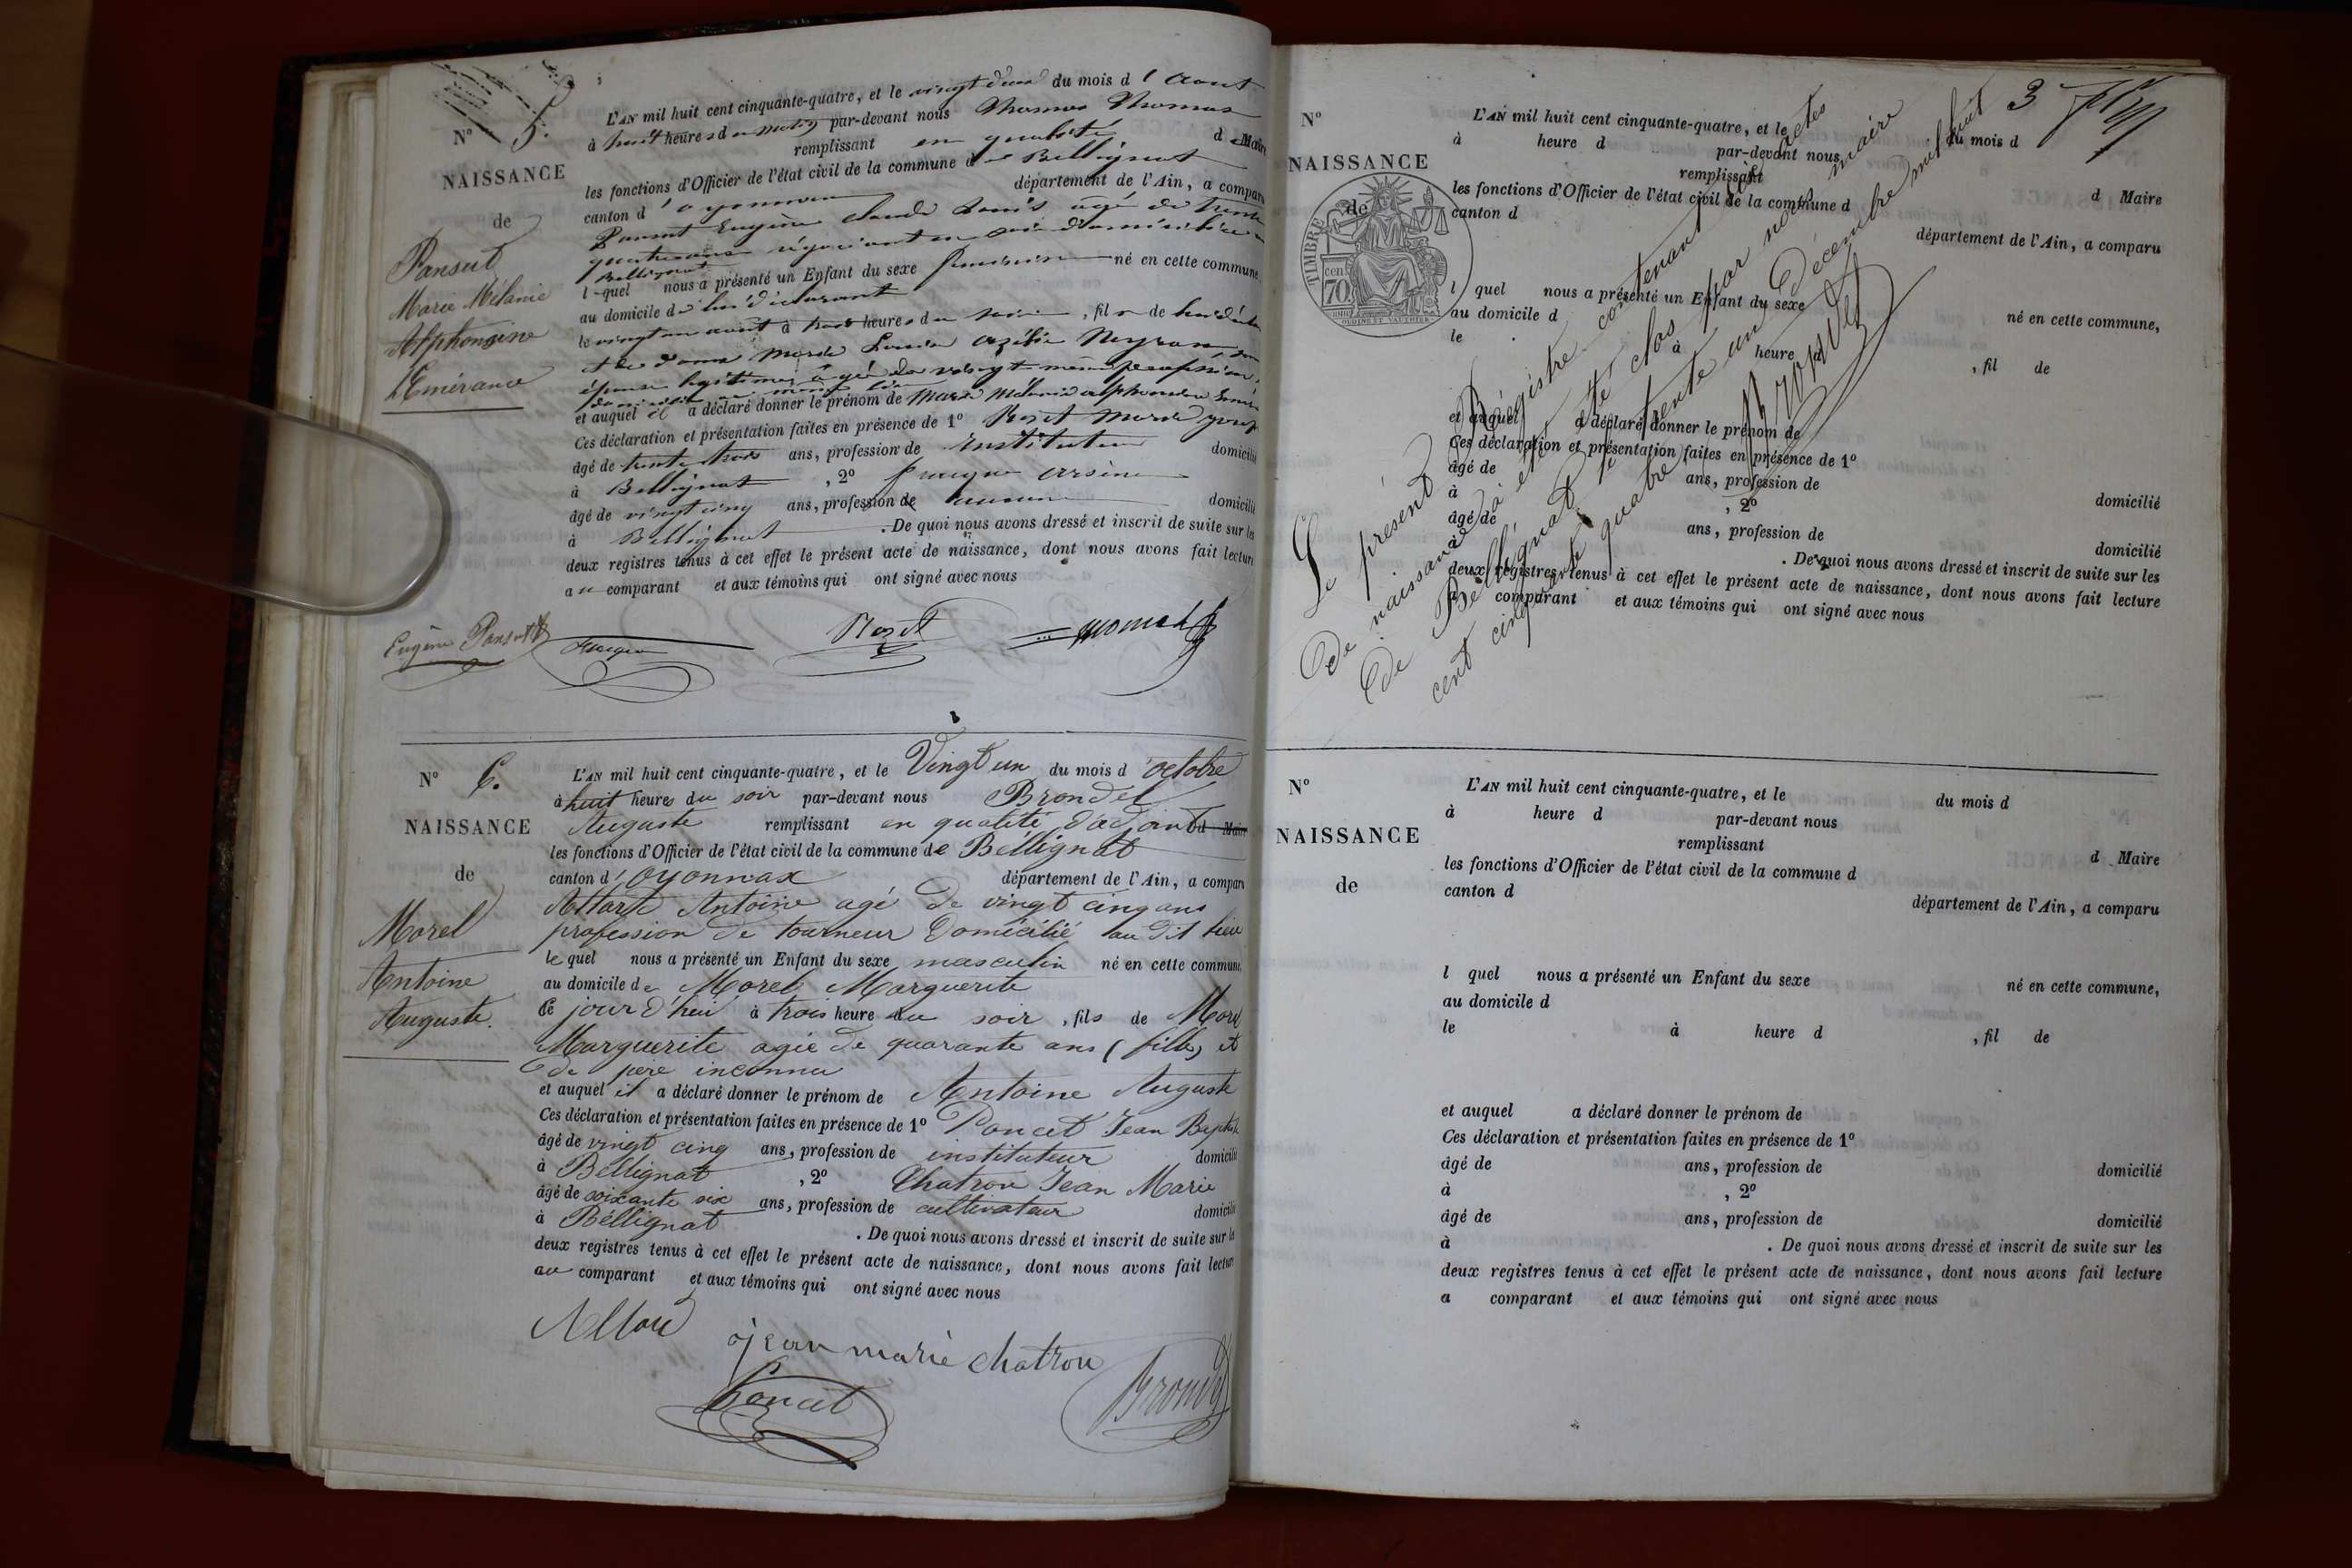 N° 5.
NAISSANCE
de
Pansut
Marie Mélanie
Alphonsine
L'Émérance
L'AN mil huit cent cinquante-quatre, et le vingt deux du mois d'Aout
à huit heures du matin par-devant nous Thomas Thomas
remplissant en qualité d Maire
les fonctions d'Officier de l'état civil de la commune de Bellignat
canton d'oyonnax département de l'Ain, a comparu
Pansut Eugène claude Louis agé de trente
quatre ans négociant en soie domicilié a
Bellignat
l quel nous a présenté un Enfant du sexe féminin né en cette commune
au domicile de lui déclarant
le vingt un août à trois heures du soir, fille de lui déclarant
et de dame Marie Louise Neyran, son
épouse légitime, agée de vingt même profession
domiciliée au même lieu
et auquel il a déclaré donner le prénom de Marie Mélanie alphonsine
Ces déclaration et présentation faites en présence de 1° Rozet Marie
âgé de trente trois ans, profession de Instituteur domicilié
à Bellignat, 2° arsène
âgé de vingt cinq ans, profession de domicilié
à Bellignat. De quoi nous avons dressé et inscrit de suite sur les
deux registres tenus à cet effet le présent acte de naissance, dont nous avons fait lecture
au comparant et aux témoins qui ont signé avec nous
Eugène Pansut
Rozet
Thomas
N° 6.
NAISSANCE
de
Morel
Antoine
Auguste.
L'AN mil huit cent cinquante-quatre, et le Vingt un du mois d'octobre
à huit heures du soir par-devant nous Brondel
Auguste remplissant en qualité d'adjoint d Maire
les fonctions d'Officier de l'état civil de la commune de Béllignat
canton d'Oyonnax département de l'Ain, a comparu
Allard Antoine agé de vingt cinq ans
profession de tourneur domicilié au dit lieu
le quel nous a présenté un Enfant du sexe masculin né en cette commune,
au domicile de Morel Marguerite
Ce jour d'hui à trois heure du soir, fils de Morel
Marguerite agée de quarante ans (fille) et
de père inconnu
et auquel il a déclaré donner le prénom de Antoine Auguste
Ces déclaration et présentation faites en présence de 1° Poncet Jean Baptiste
âgé de vingt cinq ans, profession de instituteur domicilié
à Béllignat, 2° Chatron Jean Marie
âgé de soixante six ans, profession de cultivateur domicilié
à Béllignat. De quoi nous avons dressé et inscrit de suite sur les
deux registres tenus à cet effet le présent acte de naissance, dont nous avons fait lecture
au comparant et aux témoins qui ont signé avec nous
Allard
jean marie chatron
Poncet
Brondel
3
N°
NAISSANCE
de
TIMBRE
cen
70.
L'AN mil huit cent cinquante-quatre, et le du mois d
à heure d par-devant nous
remplissant d Maire
les fonctions d'Officier de l'état civil de la commune d
canton d département de l'Ain, a comparu
l quel nous a présenté un Enfant du sexe né en cette commune,
au domicile d
le à heure d, fil de
et auquel a déclaré donner le prénom de
Ces déclaration et présentation faites en présence de 1°
âgé de ans, profession de domicilié
à, 2°
âgé de ans, profession de domicilié
à. De quoi nous avons dressé et inscrit de suite sur les
deux registres tenus à cet effet le présent acte de naissance, dont nous avons fait lecture
a comparant et aux témoins qui ont signé avec nous
Le présent Registre contenant six actes
de naissance à été clos par nous maire
de Béllignat le trente un Décembre mil huit
cent cinquante quatre
N°
NAISSANCE
de
L'AN mil huit cent cinquante-quatre, et le du mois d
à heure d par-devant nous
remplissant d Maire
les fonctions d'Officier de l'état civil de la commune d
canton d département de l'Ain, a comparu
l quel nous a présenté un Enfant du sexe né en cette commune,
au domicile d
le à heure d, fil de
et auquel a déclaré donner le prénom de
Ces déclaration et présentation faites en présence de 1°
âgé de ans, profession de domicilié
à, 2°
âgé de ans, profession de domicilié
à. De quoi nous avons dressé et inscrit de suite sur les
deux registres tenus à cet effet le présent acte de naissance, dont nous avons fait lecture
a comparant et aux témoins qui ont signé avec nous